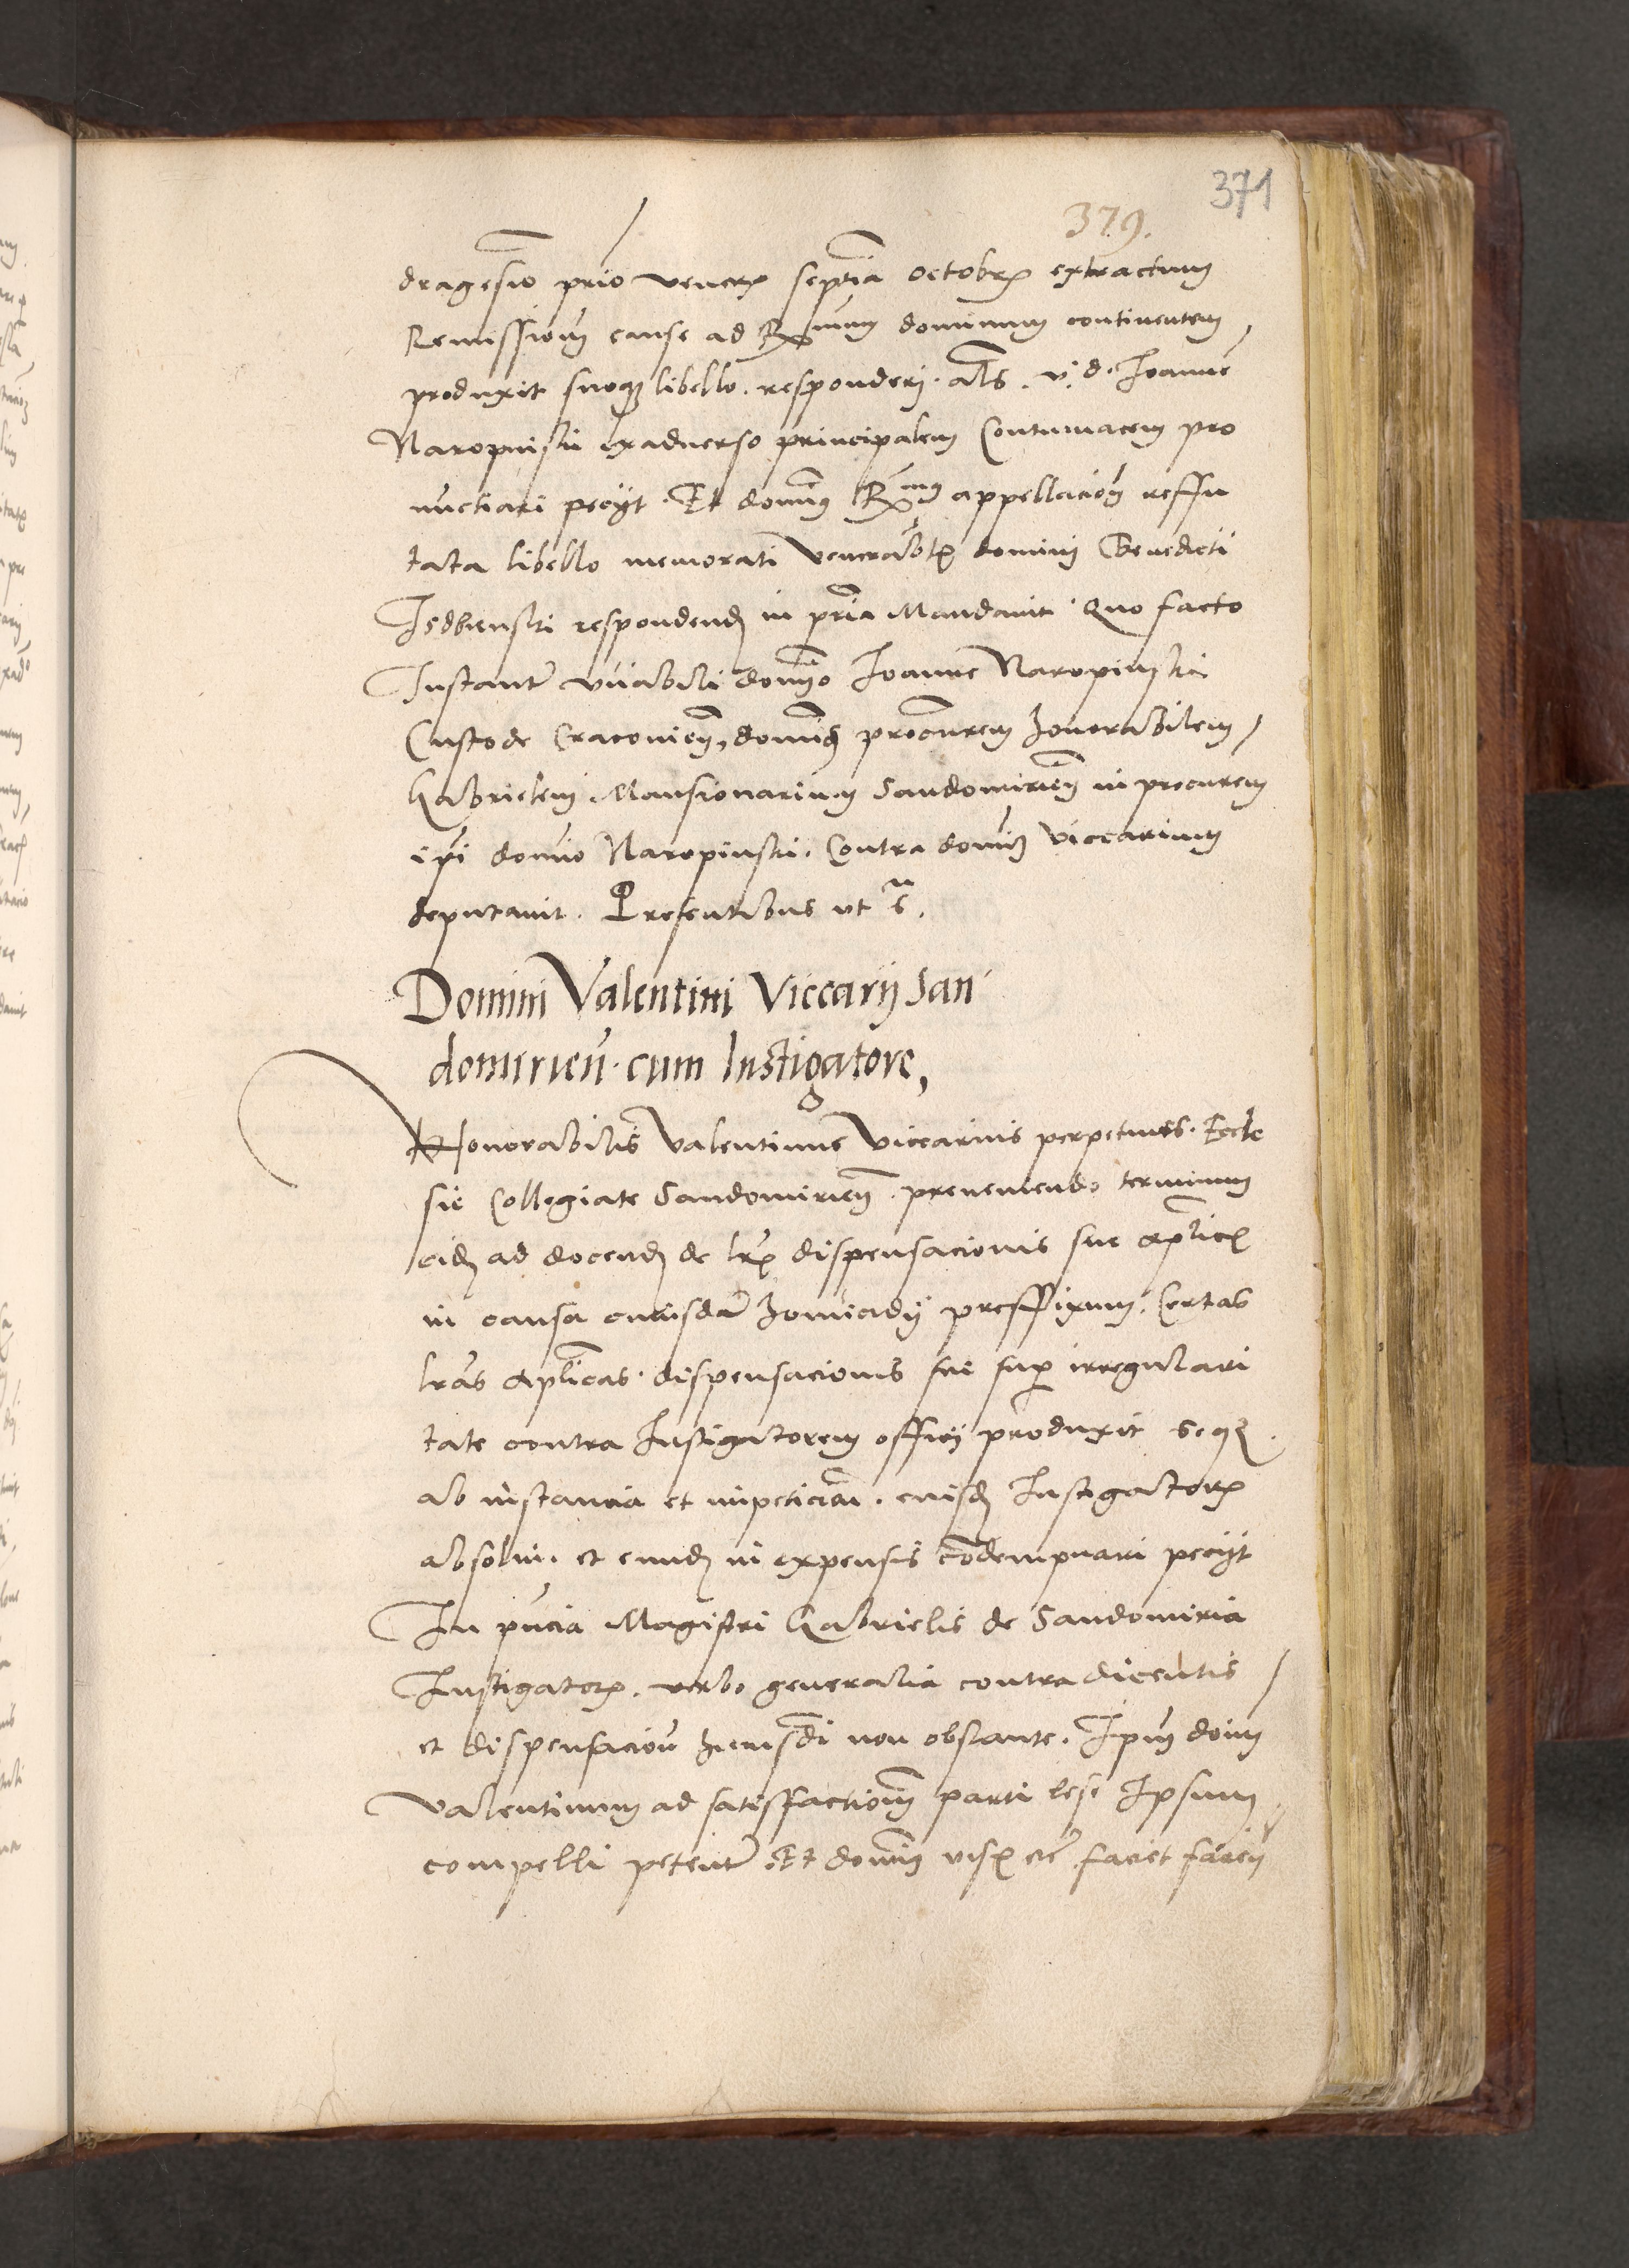 371
379.
dragesio prio veneris septia octobris extractum
Remissionem cause ad Rmum dominum continentem,
produxit suoque libello . responderi . als . v. d. Joannem
Naropinski exadverso principalem Contumacem pro
nuctiari peciit . Et dominus Rmus appellacion reffu
tata libello memorati venerabilis domini Benedicti
Isdbienski respondendum in pria Mandavit . Quo facto
Instante vnabili domino Joanne Naropinski
Custode Cracovien, dominus procurem honorabilem
Gabrielem . Mansionarium Sandomirien in procurem
ipi domino Naropinski . Contra dominum viccarium
deputavit . Presentibus ut s.
Domini Valentini Viccarij San
domirien . cum Instigatore,
Honorabilis Valentinus viccarius perpetuus . Eccle
sie Collegiate Sandomirien . preveniendo terminum
eidem ad docendum de lris dispensacionis sue aplice
in causa cuiusdam homicidij preffixum . Certas
lras aplicas . dispensacionis sue super irregulari
tate contra Instigatorem officij produxit seque .
ab instancia et impeticione . eiusdem Instigatoris
absolui . et eundem in expensis condempnari peciit
In pncia Magistri Gabrielis de Sandomiria
Instigatoris . verbo generalia contradicentis
et dispensacion huiusmodi non obstante . Ipsum doim
Valentinum ad satisfactionem parti lese Ipsum
compelli petente . Et dominus